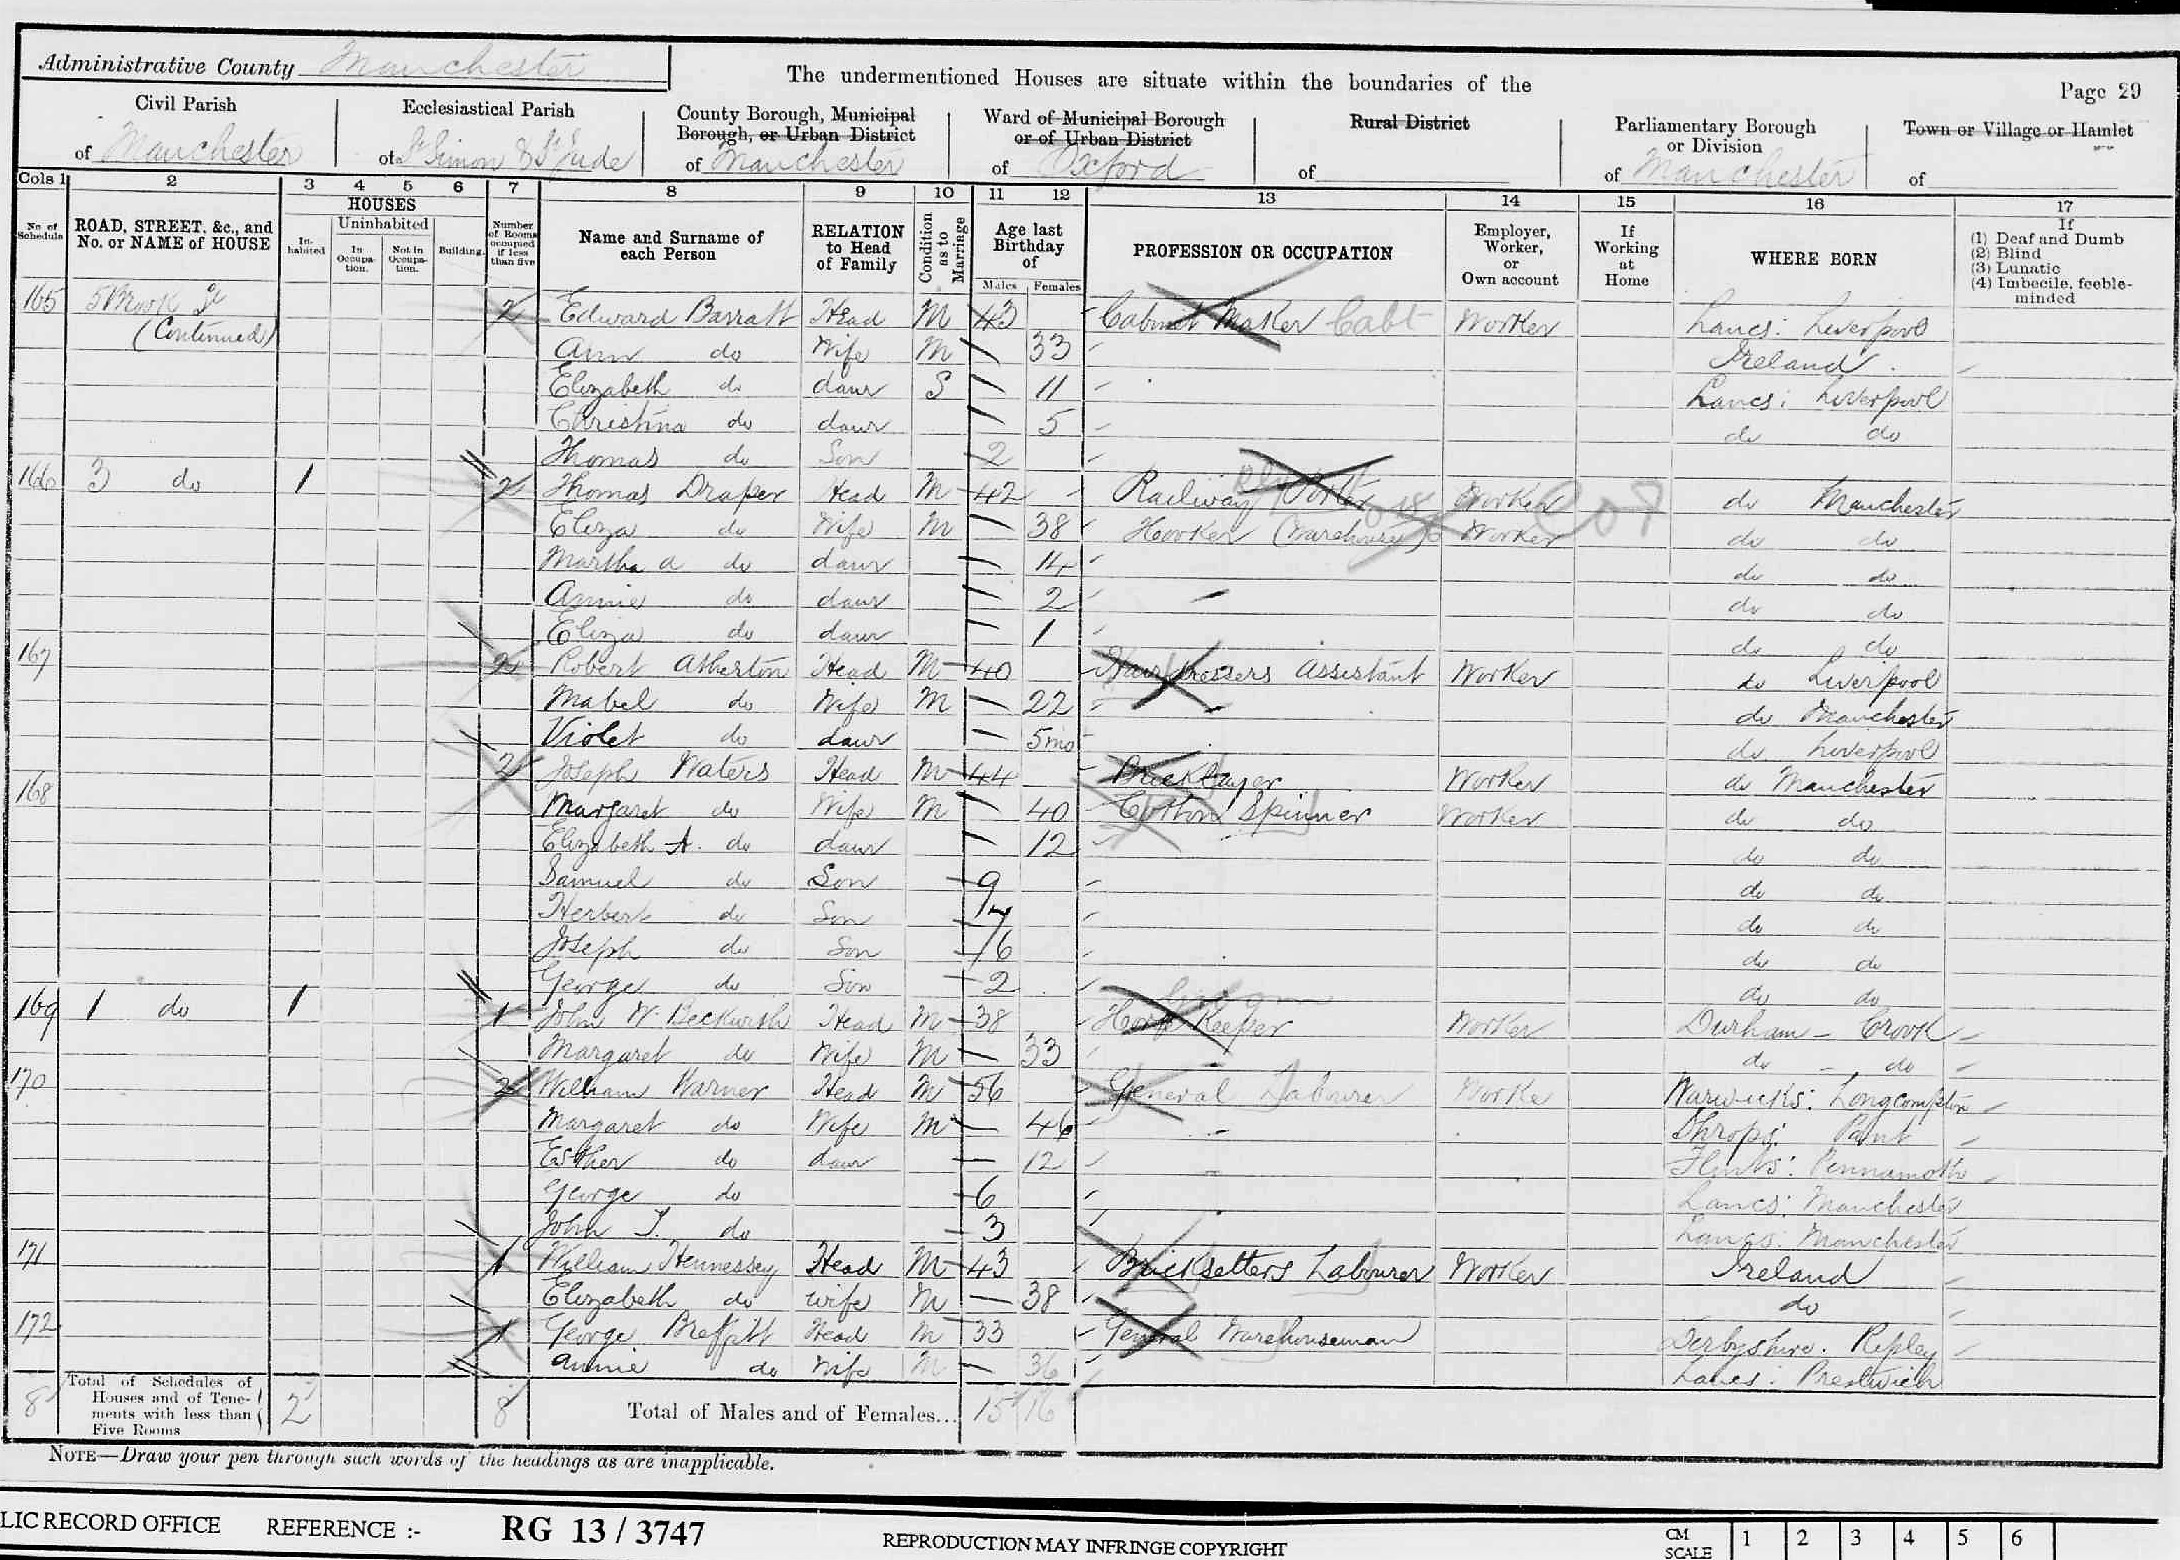 Administrative County Manchester
The undermentioned Houses are situate within the boundaries of the
Page 29
Civil Parish of Manchester
Ecclesiastical Parish of St Simon & St Jude
County Borough, Municipal Borough, or Urban District of Manchester
Ward of Municipal Borough or of Urban District of Oxford
Rural District of
Parliamentary Borough or Division of Manchester
Town or Village or Hamlet of
Cols 1 2 3 4 5 6 7 8 9 10 11 12 13 14 15 16 17
No. of Schedule
ROAD, STREET, &c., and No. or NAME of HOUSE
HOUSES
Inhabited
Uninhabited
In Occupation.
Not in Occupation.
Building.
Number of Rooms occupied if less than five
Name and Surname of each Person
RELATION to Head of Family
Condition as to Marriage
Age last Birthday of
Males Females
PROFESSION OR OCCUPATION
Employer, Worker, or Own account
If Working at Home
WHERE BORN
If
(1) Deaf and Dumb
(2) Blind
(3) Lunatic
(4) Imbecile, feeble-minded
165 5 Brook St 2 Edward Barratt Head M 43 Cabinet Maker Cabt Worker Lancs: Liverpool
(Continued) Ann do Wife M 33 Ireland
Elizabeth do daur S 11 Lancs: Liverpool
Christina do daur 5 do do
Thomas do Son 2
166 3 do 1 2 Thomas Draper Head M 42 Railway Porter Worker do Manchester
Eliza do Wife M 38 Hooker (Warehouse) Worker do do
Martha A do daur 14 do do
Annie do daur 2 do do
Eliza do daur 1 do do
167 2 Robert Atherton Head M 40 Hairdressers Assistant Worker do Liverpool
Mabel do Wife M 22 do Manchester
Violet do daur 5mo do Liverpool
168 2 Joseph Waters Head M 44 Bricklayer Worker do Manchester
Margaret do Wife M 40 Cotton Spinner Worker do do
Elizabeth A. do daur 12 do do
Samuel do Son 9 do do
Herbert do Son 7 do do
Joseph do Son 6 do do
George do Son 2 do do
169 1 do 1 1 John W. Beckwith Head M 38 Horse Keeper Worker Durham - Crook
Margaret do Wife M 33 do - do
170 2 William Warner Head M 56 General Labourer Worker Warwicks: Longcompton
Margaret do Wife M 46 Shrops:
Esther do daur 12 Flints:
George do 6 Lancs: Manchester
John T. do 3 Lancs: Manchester
171 1 William Hennessey Head M 43 Bricksetters Labourer Worker Ireland
Elizabeth do wife M 38 do
172 1 George Head M 33 General Warehouseman Derbyshire. Ripley
Annie do Wife M 36 Lancs: Prestwich
8 Total of Schedules of Houses and of Tenements with less than Five Rooms 2 8 Total of Males and of Females... 15 16
NOTE—Draw your pen through such words of the headings as are inapplicable.
LIC RECORD OFFICE REFERENCE :- RG 13 / 3747 REPRODUCTION MAY INFRINGE COPYRIGHT
CM SCALE 1 2 3 4 5 6